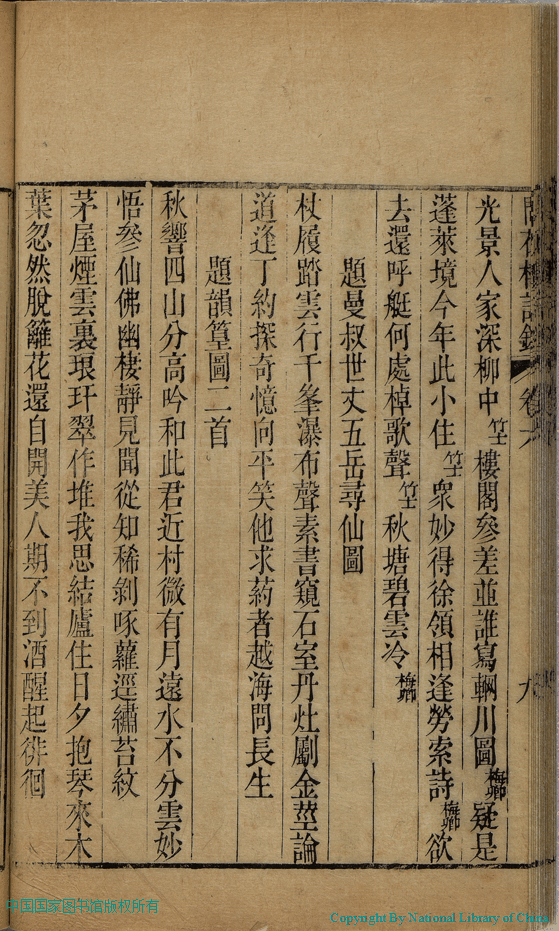 光景人家深柳中竹士樓閣參差並誰寫輞川圖梅卿疑是
蓬萊境今年此小住竹士衆妙得徐領相逢勞索詩梅卿欲
去還呼艇何處棹歌聲竹士秋塘碧雲冷梅卿
題曼叔世丈五岳尋仙圖
杖履踏雲行千峯瀑布聲素書窺石室丹灶劚金莖論
道逢丁約探奇憶向平笑他求葯者越海問長生
題韻篁圖二首
秋響四山分高吟和此君近村微有月遠水不分雲妙
悟參仙佛幽棲靜見聞從知稀剝啄蘿逕繡苔紋
茅屋煙雲裏琅玕翠作堆我思結廬住日夕抱琴來木
葉忽然脫籬花還自開美人期不到酒醒起徘徊
中国国家图书馆版权所有
Copyright By National Library of China